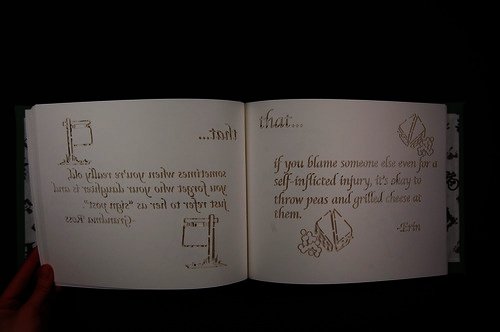 that...
sometimes when you're really old,
you forget who your daughter is and
just refer to her as "sign post".
-Grandma Ross
that...
if you blame someone else even for a
self-inflicted injury, it's okay to
throw peas and grilled cheese at
them.
-Erin